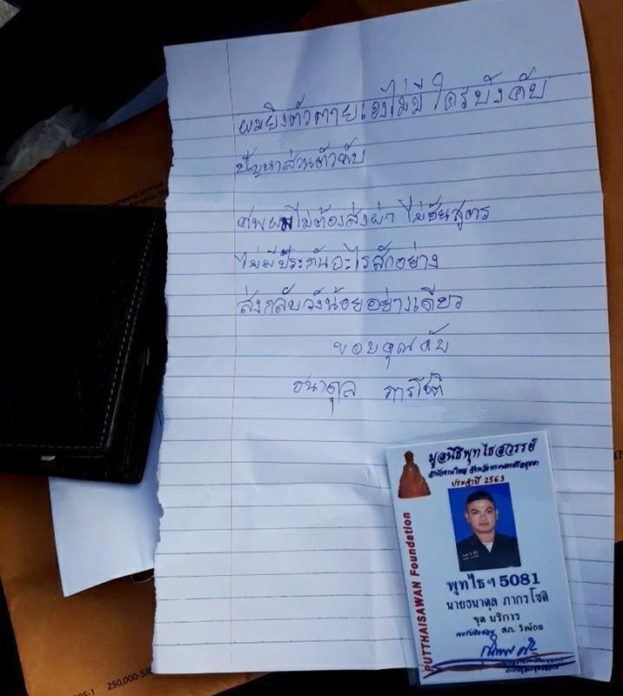 ผมยิงตัวตายเองไม่มีใครบังคับ
ปัญหาส่วนตัวคับ
ศพผมไม่ต้องส่งผ่า ไม่ชันสูตร
ไม่มีประกันอะไรสักอย่าง
ส่งกลับวังน้อยอย่างเดียว
ขอบคุณคับ
ธนาดุล ภากรโชติ
มูลนิธิพุทไธสวรรย์
ประจำปี 2563
PUTTHAISAWAN Foundation
พุทไธฯ 5081
นายธนาดุล ภากรโชติ
จุด บริการ
สภ. วังน้อย
250,000-5/